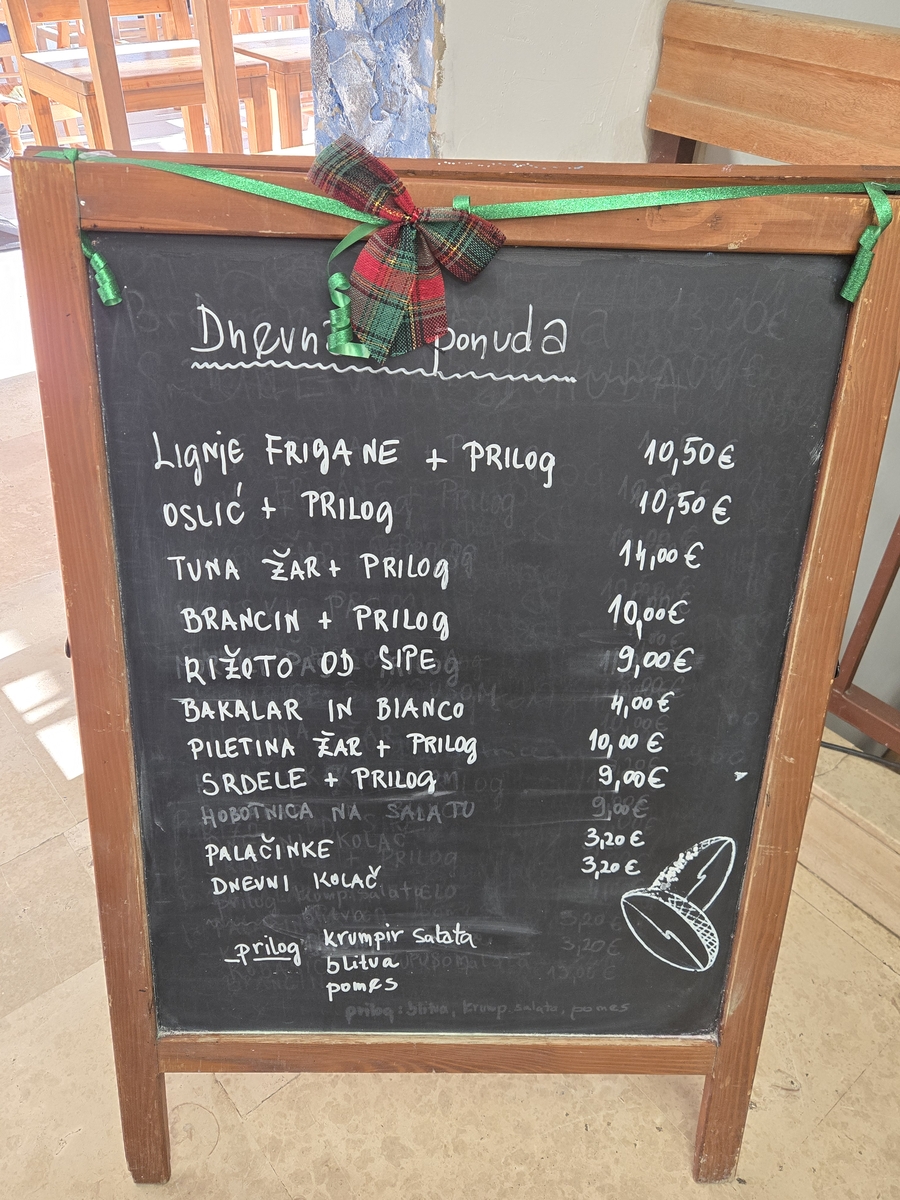 Dnevna ponuda
LIGNJE FRIGANE + PRILOG 10,50€
OSLIĆ + PRILOG 10,50€
TUNA ŽAR + PRILOG 14,00€
BRANCIN + PRILOG 10,00€
RIŽOTO OD SIPE 9,00€
BAKALAR IN BIANCO 4,00€
PILETINA ŽAR + PRILOG 10,00€
SRDELE + PRILOG 9,00€
HOBOTNICA NA SALATU 9,00€
PALAČINKE 3,20€
DNEVNI KOLAČ 3,20€
prilog krumpir salata
blitva
pomes
prilog: blitva, krump. salata, pomes